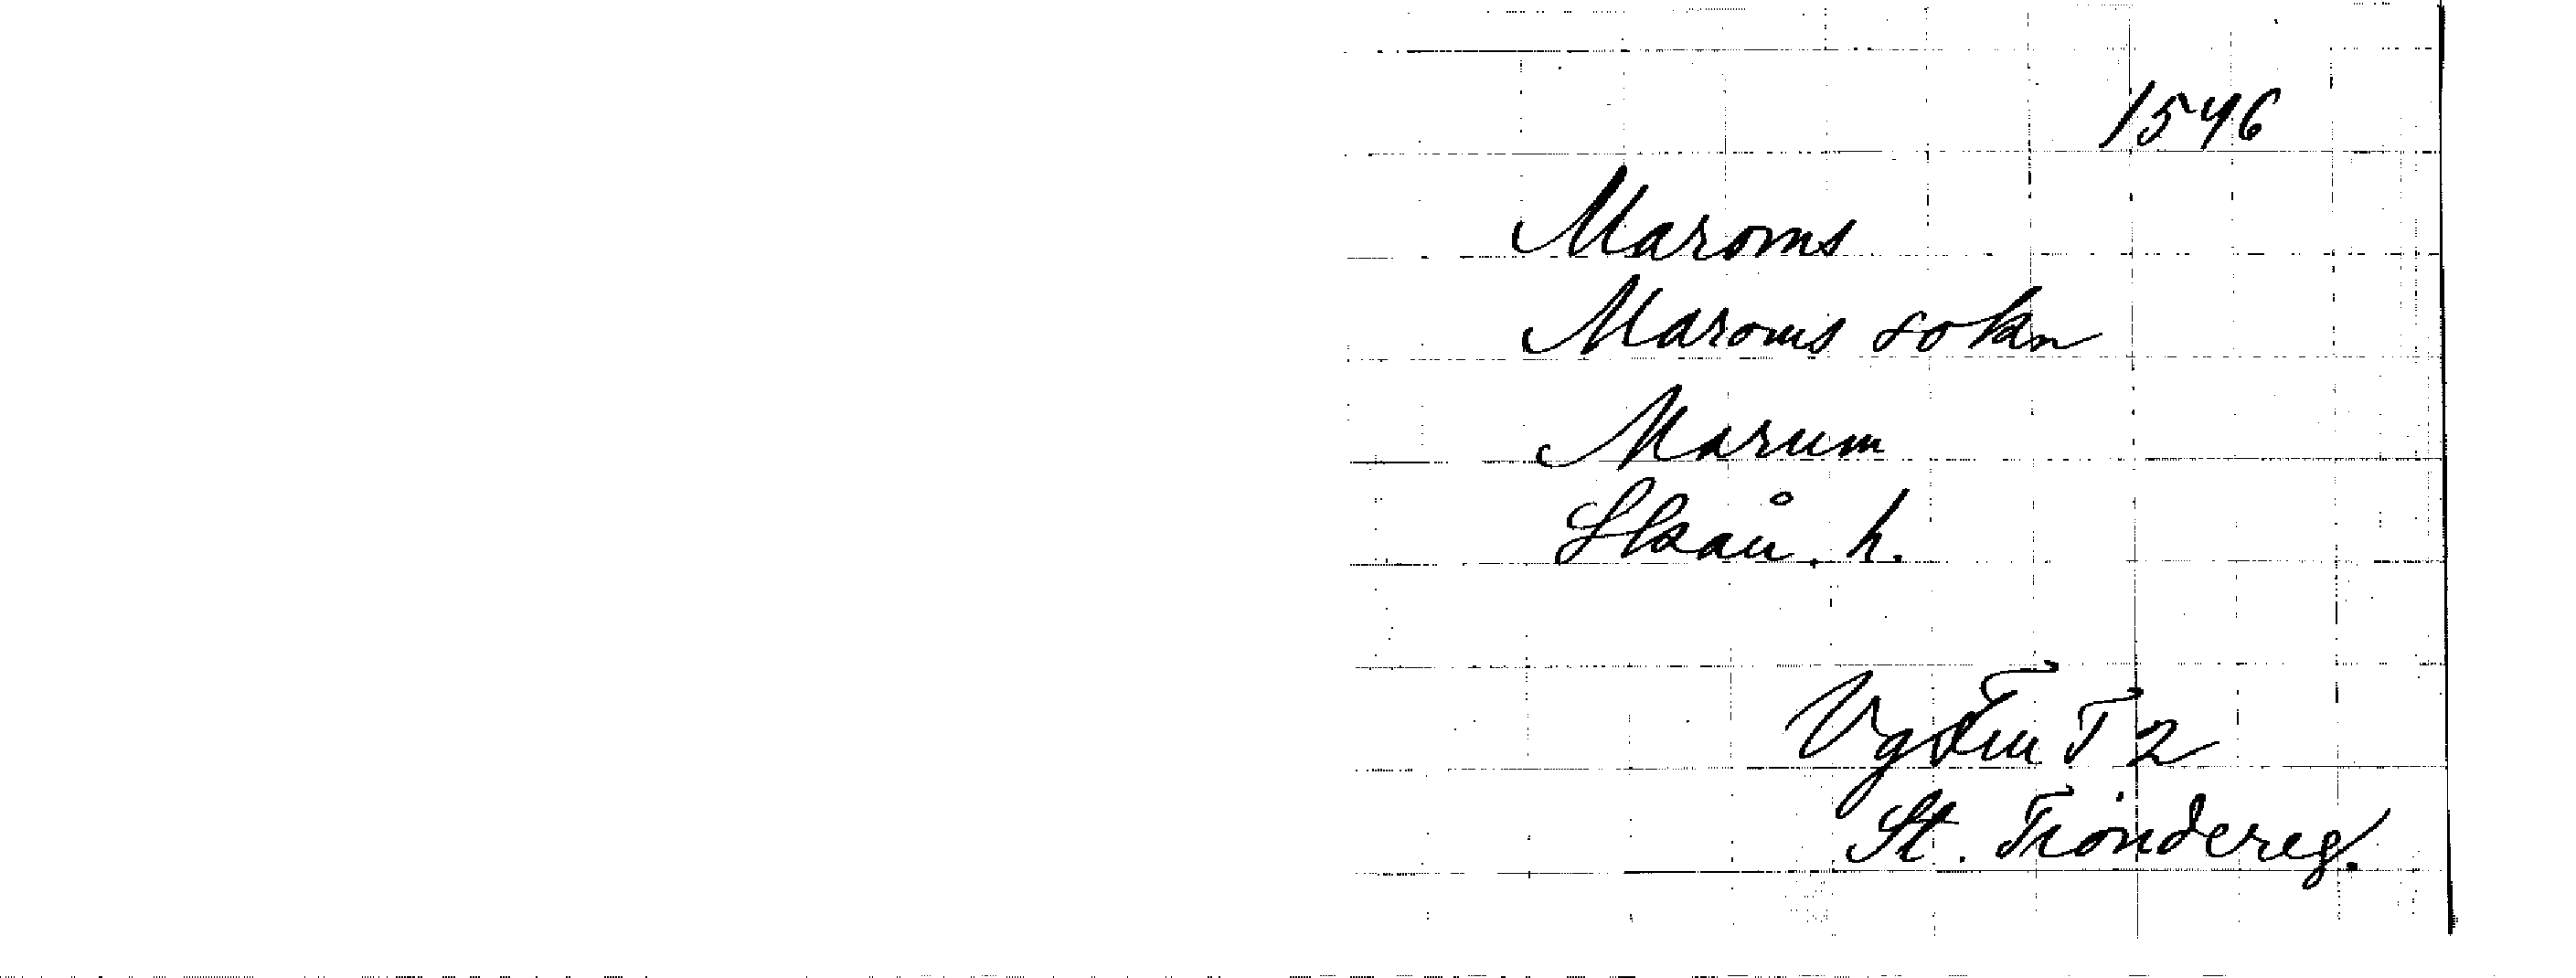 1546
Maroms
Maroms sokn
Marum
Skån. h.
Vg Tiu T 2
St. Tiondereg.